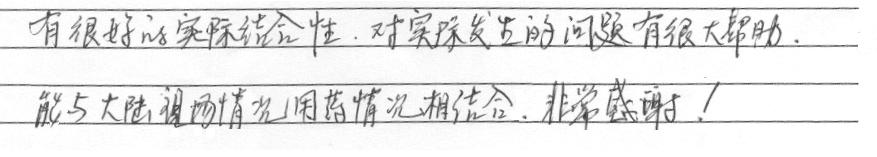 有很好的实际结合性．对实际发生的问题有很大帮助．
能与大陆现场情况/用药情况相结合．非常感谢！